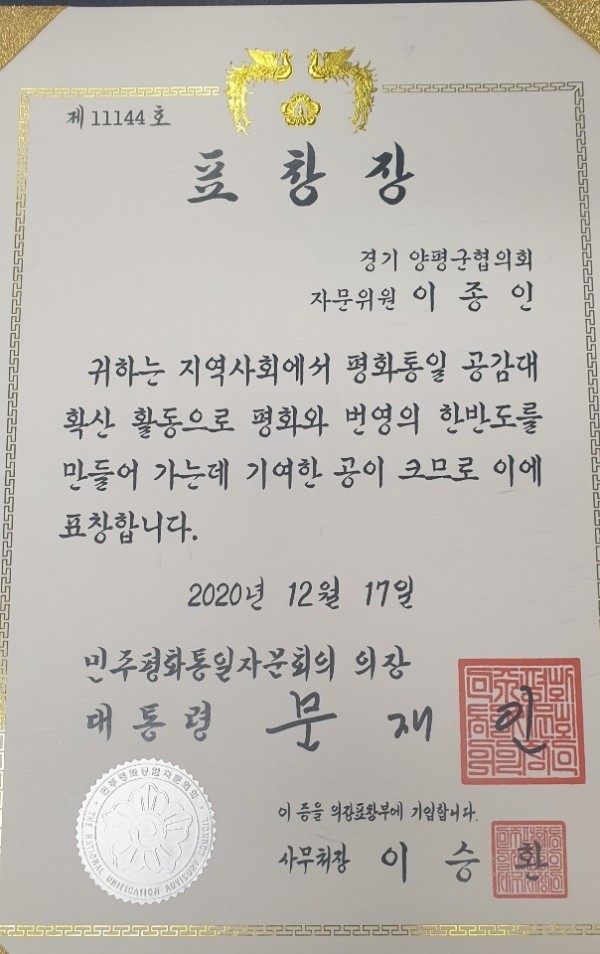 제 11144 호
표 창 장
경기 양평군협의회
자문위원 이 종 인
귀하는 지역사회에서 평화통일 공감대
확산 활동으로 평화와 번영의 한반도를
만들어 가는데 기여한 공이 크므로 이에
표창합니다.
2020년 12월 17일
민주평화통일자문회의 의장
대통령 문 재 인
이 증을 의장표창부에 기입합니다.
사무처장 이 승 환
민주평화통일자문회의
THE NATIONAL UNIFICATION ADVISORY COUNCIL